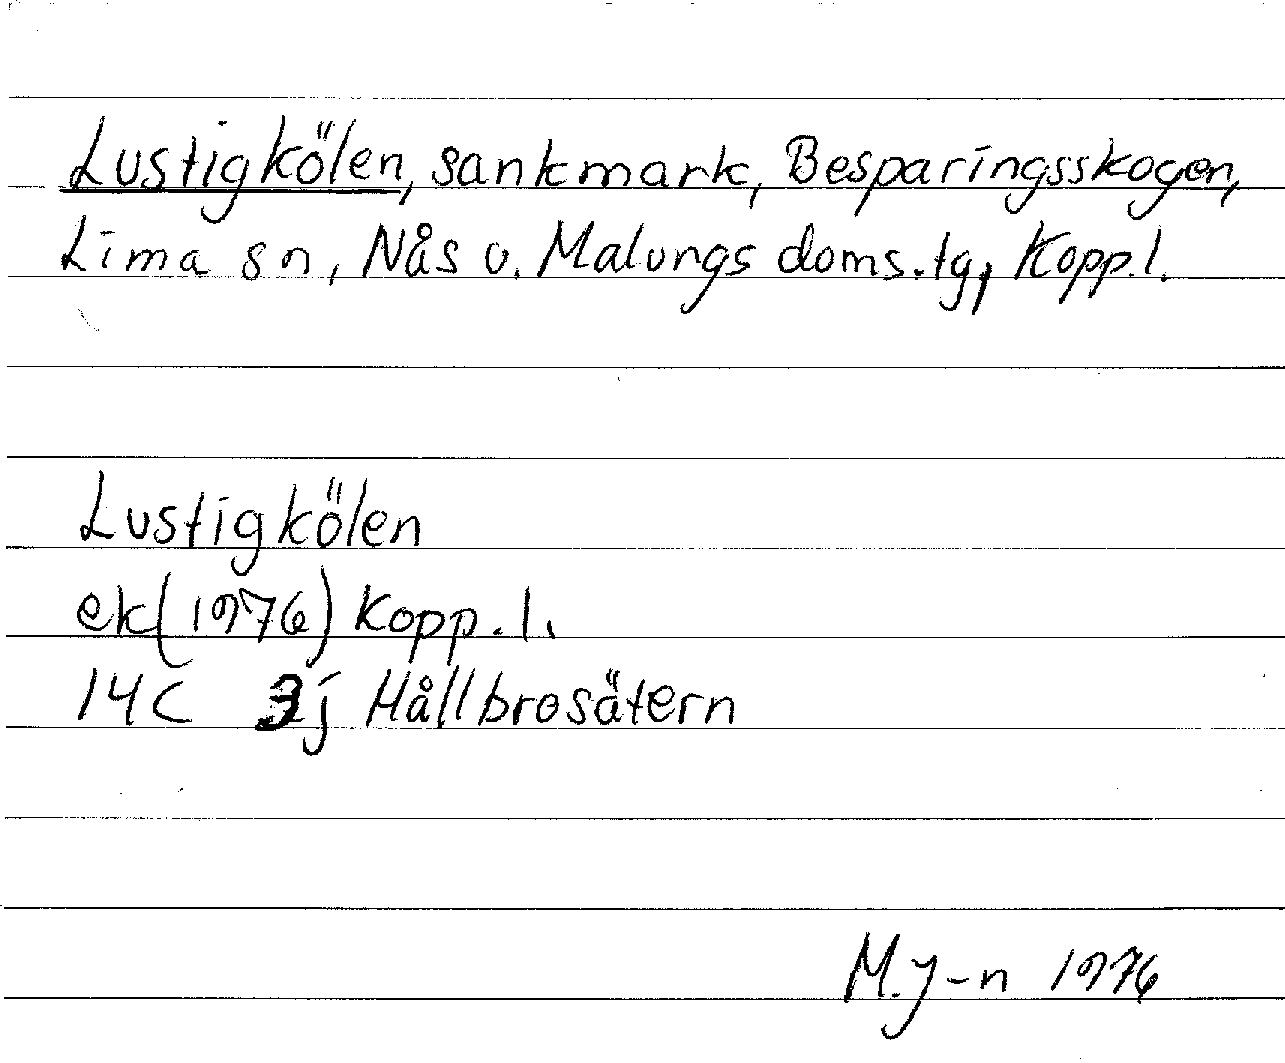 Lustigkölen, sankmark, Besparingsskogen,
Lima sn, Nås o. Malungs doms.tg, Kopp.l.
Lustigkölen
ek(1976) Kopp.l.
14C 3j Hållbrosätern
M.J-n 1976